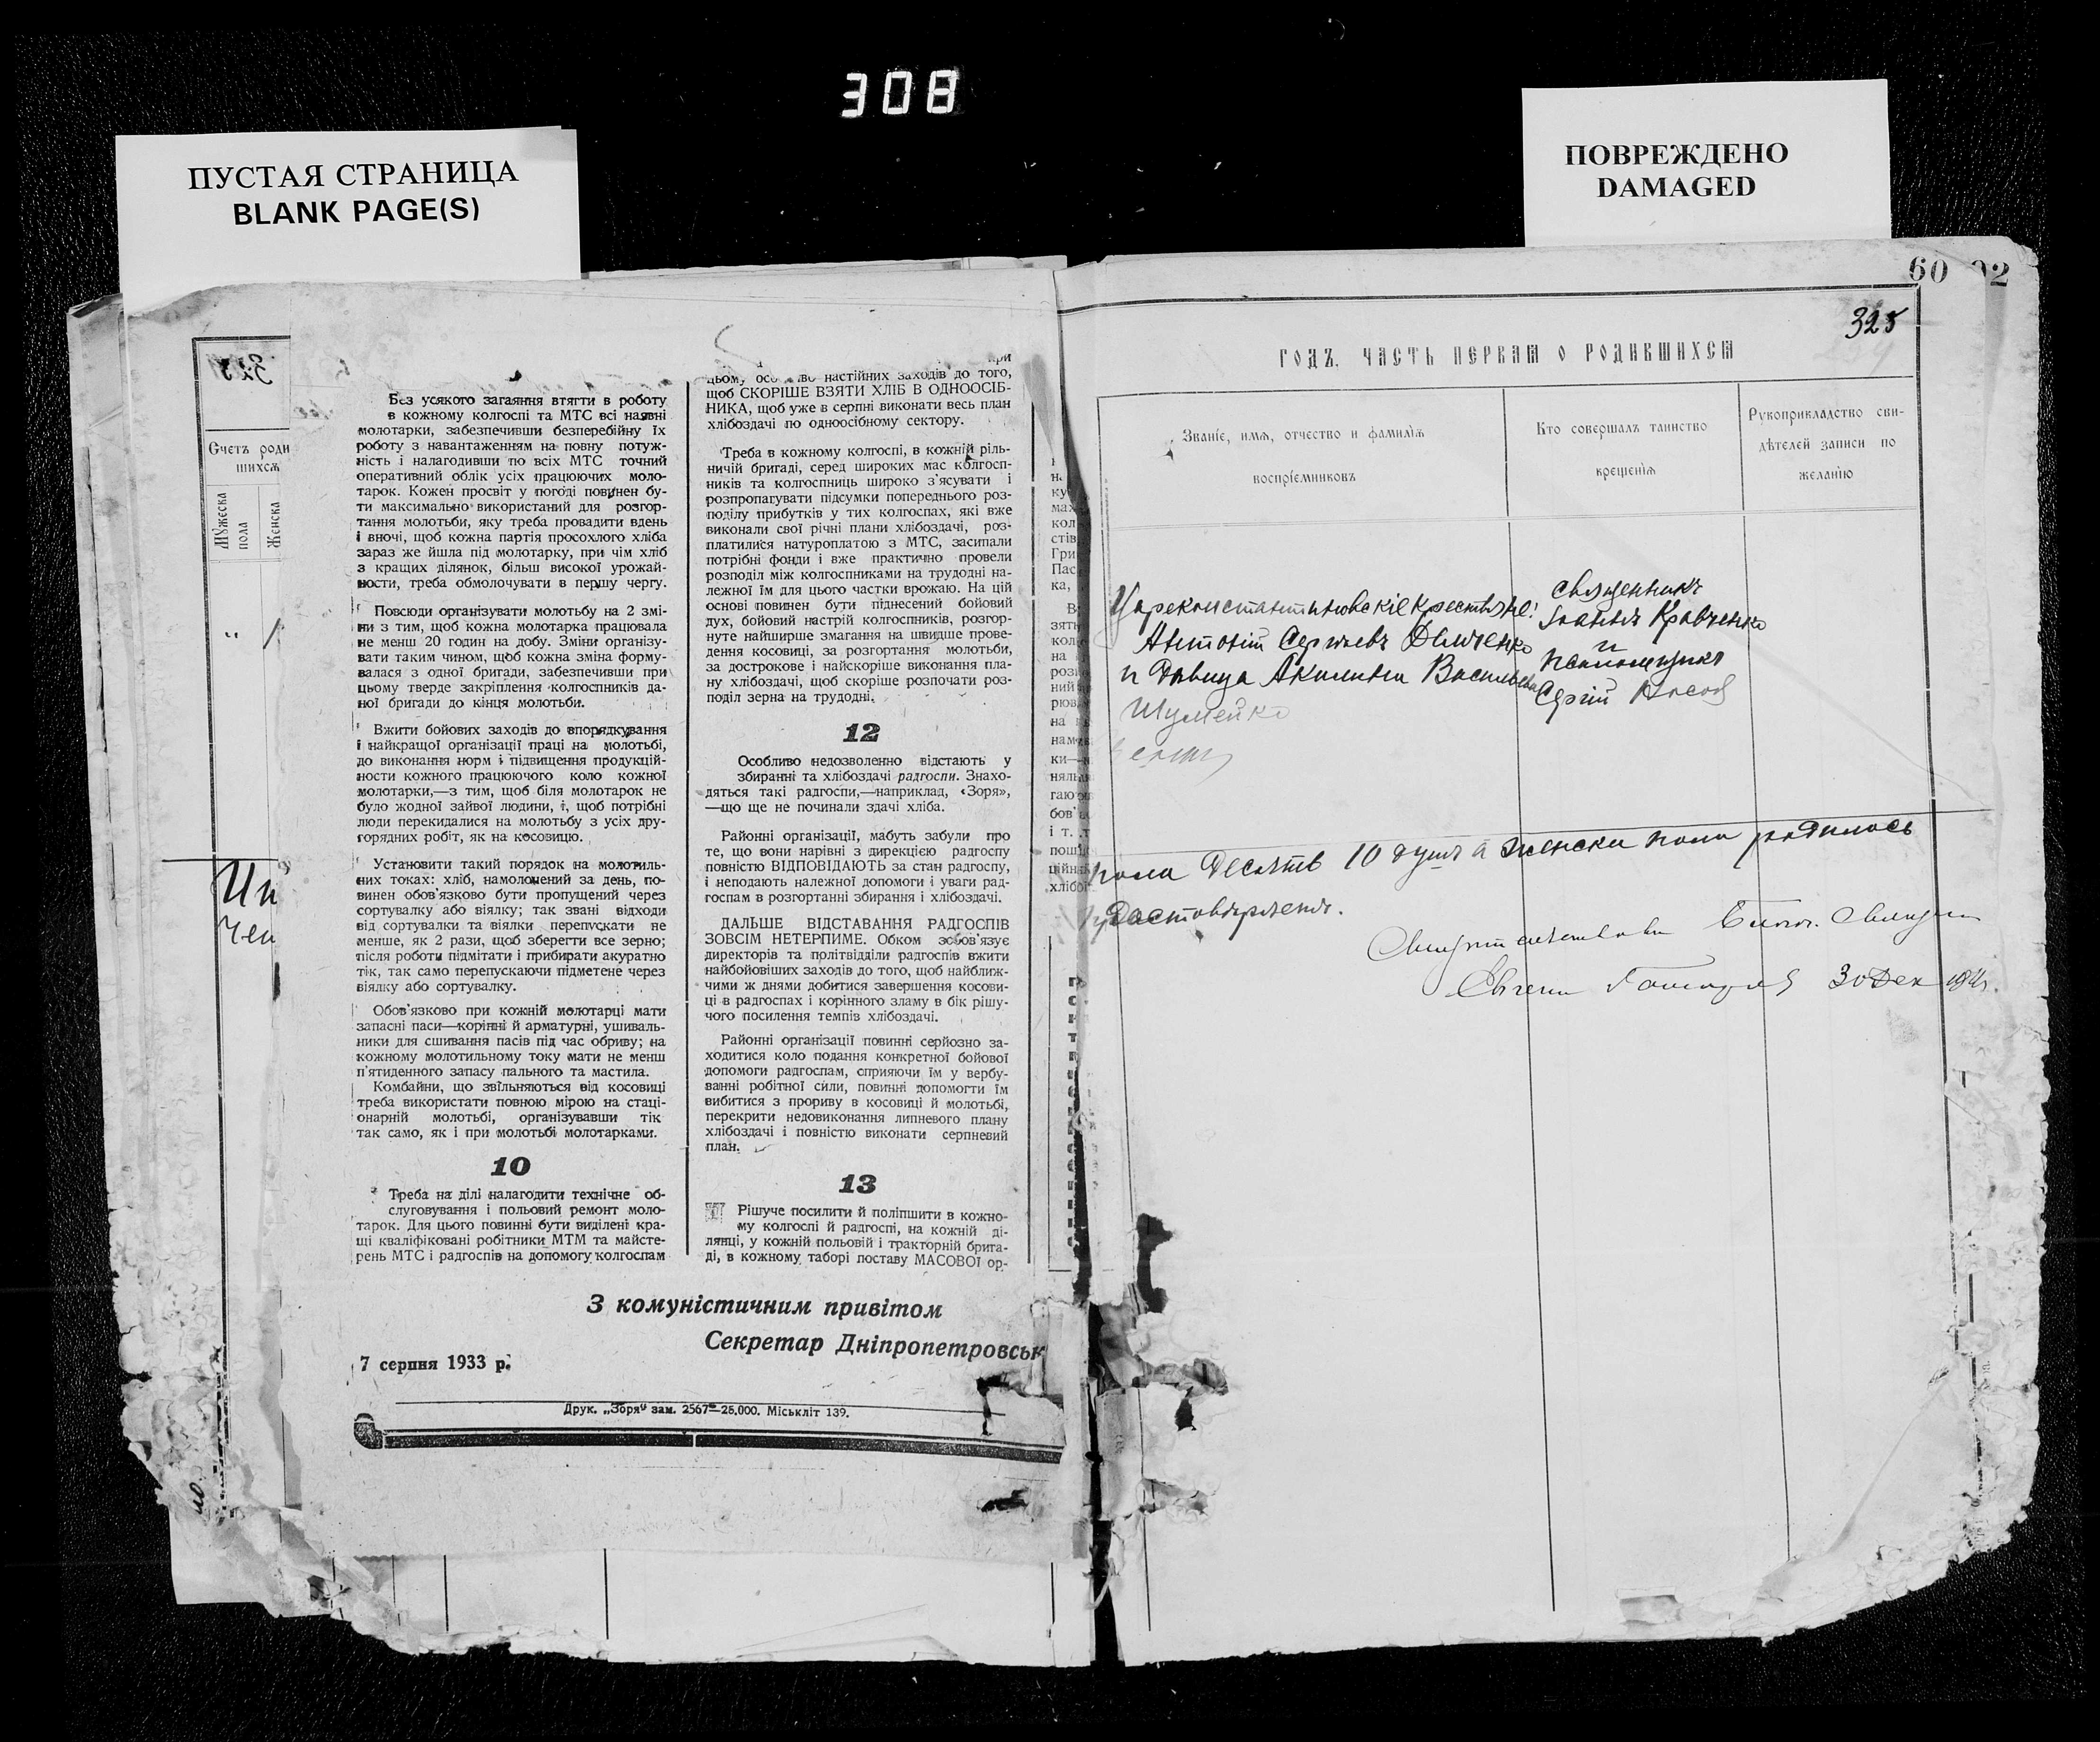 308
ПУСТАЯ СТРАНИЦА
BLANK PAGE(S)
ПОВРЕЖДЕНО
DAMAGED
Счетъ роди
шихсѧ
Мꙋжеска
пола
Женска
"
1
Ит
чен
Без усякого загаяння втягти в роботу
в кожному колгоспі та МТС всі наявні
молотарки, забезпечивши безперебійну їх
роботу з навантаженням на повну потуж-
ність і налагодивши по всіх МТС точний
оперативний облік усіх працюючих моло-
тарок. Кожен просвіт у погоді повинен бу-
ти максимально використаний для розгор-
тання молотьби, яку треба провадити вдень
і вночі, щоб кожна партія просохлого хліба
зараз же йшла під молотарку, при чім хліб
з кращих ділянок, більш високої урожай-
ности, треба обмолочувати в першу чергу.
Повсюди організувати молотьбу на 2 змі-
ни з тим, щоб кожна молотарка працювала
не менш 20 годин на добу. Зміни організу-
вати таким чином, щоб кожна зміна форму-
валася з одної бригади, забезпечивши при
цьому тверде закріплення колгоспників да-
ної бригади до кінця молотьби.
Вжити бойових заходів до впорядкування
і найкращої організації праці на молотьбі,
до виконання норм і підвищення продукцій-
ности кожного працюючого коло кожної
молотарки,—з тим, щоб біля молотарок не
було жодної зайвої людини, і, щоб потрібні
люди перекидалися на молотьбу з усіх дру-
горядних робіт, як на косовицю.
Установити такий порядок на молотиль-
них токах: хліб, намолочений за день, по-
винен обов'язково бути пропущений через
сортувалку або віялку; так звані відходи
від сортувалки та віялки перепускати не
менше, як 2 рази, щоб зберегти все зерно;
після роботи підмітати і прибирати акуратно
тік, так само перепускаючи підметене через
віялку або сортувалку.
Обов'язково при кожній молотарці мати
запасні паси—корінні й арматурні, ушиваль-
ники для сшивання пасів під час обриву; на
кожному молотильному току мати не менш
п'ятиденного запасу пального та мастила.
Комбайни, що звільняються від косовиці
треба використати повною мірою на стаці-
онарній молотьбі, організувавши тік
так само, як і при молотьбі молотарками.
10
Треба на ділі налагодити технічне об-
слуговування і польовий ремонт моло-
тарок. Для цього повинні бути виділені кра-
щі кваліфіковані робітники МТМ та майсте-
рень МТС і радгоспів на допомогу колгоспам
при
цьому настійних заходів до того,
щоб СКОРІШЕ ВЗЯТИ ХЛІБ В ОДНООСІБ-
НИКА, щоб уже в серпні виконати весь план
хлібоздачі по одноосібному сектору.
Треба в кожному колгоспі, в кожній ріль-
ничій бригаді, серед широких мас колгосп-
ників та колгоспниць широко з'ясувати і
розпропагувати підсумки попереднього роз-
поділу прибутків у тих колгоспах, які вже
виконали свої річні плани хлібоздачі, роз-
платилися натуроплатою з МТС, засипали
потрібні фонди і вже практично провели
розподіл між колгоспниками на трудодні на-
лежної їм для цього частки врожаю. На цій
основі повинен бути піднесений бойовий
дух, бойовий настрій колгоспників, розгор-
нуте найширше змагання на швидше прове-
дення косовиці, за розгортання молотьби,
за дострокове і найскоріше виконання пла-
ну хлібоздачі, щоб скоріше розпочати роз-
поділ зерна на трудодні.
12
Особливо недозволенно відстають у
збиранні та хлібоздачі радгоспи. Знахо-
дяться такі радгоспи,—наприклад, «Зоря»,
—що ще не починали здачі хліба.
Районні організації, мабуть забули про
те, що вони нарівні з дирекцією радгоспу
повністю ВІДПОВІДАЮТЬ за стан радгоспу,
і неподають належної допомоги і уваги рад-
госпам в розгортанні збирання і хлібоздачі.
ДАЛЬШЕ ВІДСТАВАННЯ РАДГОСПІВ
ЗОВСІМ НЕТЕРПИМЕ. Обком зобов'язує
директорів та політвідділи радгоспів вжити
найбойовіших заходів до того, щоб найближ-
чими ж днями добитися завершення косови-
ці в радгоспах і корінного зламу в бік рішу-
чого посилення темпів хлібоздачі.
Районні організації повинні серйозно за-
ходитися коло подання конкретної бойової
допомоги радгоспам, сприяючи їм у вербу-
ванні робітної сили, повинні допомогти їм
вибитися з прориву в косовиці й молотьбі,
перекрити недовиконання липневого плану
хлібоздачі і повністю виконати серпневий
план.
13
Рішуче посилити й поліпшити в кожно-
му колгоспі й радгоспі, на кожній ді-
лянці, у кожній польовій і тракторній брига-
ді, в кожному таборі поставу МАСОВОЇ ор-
З комуністичним привітом
Секретар Дніпропетровськ
7 серпня 1933 р.
Друк. „Зоря" зам. 2567—25.000. Міськліт 139.
60 02
325
ГОДЪ, ЧАСТЬ ПЕРВАѦ О РОДИВШИХСѦ
Званїе, имѧ, отчество и фамилїѧ
воспрїемниковъ
Кто совершалъ таинство
крещенїѧ
Рꙋкоприкладство сви-
дѣтелей записи по
желанїю
Цареконстантиновскіе крестьяне:
Антоній Сергѣевъ Демченко
и Дѣвица Акилина Васильева
Шумейко
священникъ
Іоаннъ Кравченко
и
псаломщикъ
Сергій Носовъ
пола Десять 10 душъ а женска пола родилось
30 Дек